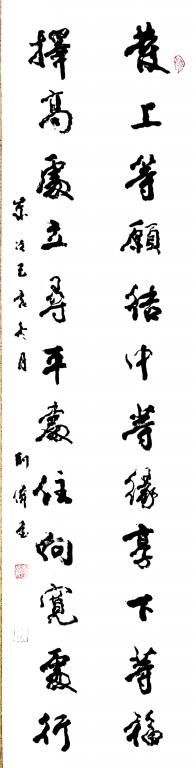 發上等願結中等緣享下等福
擇高處立尋平處住向寬處行
歲次己亥冬月